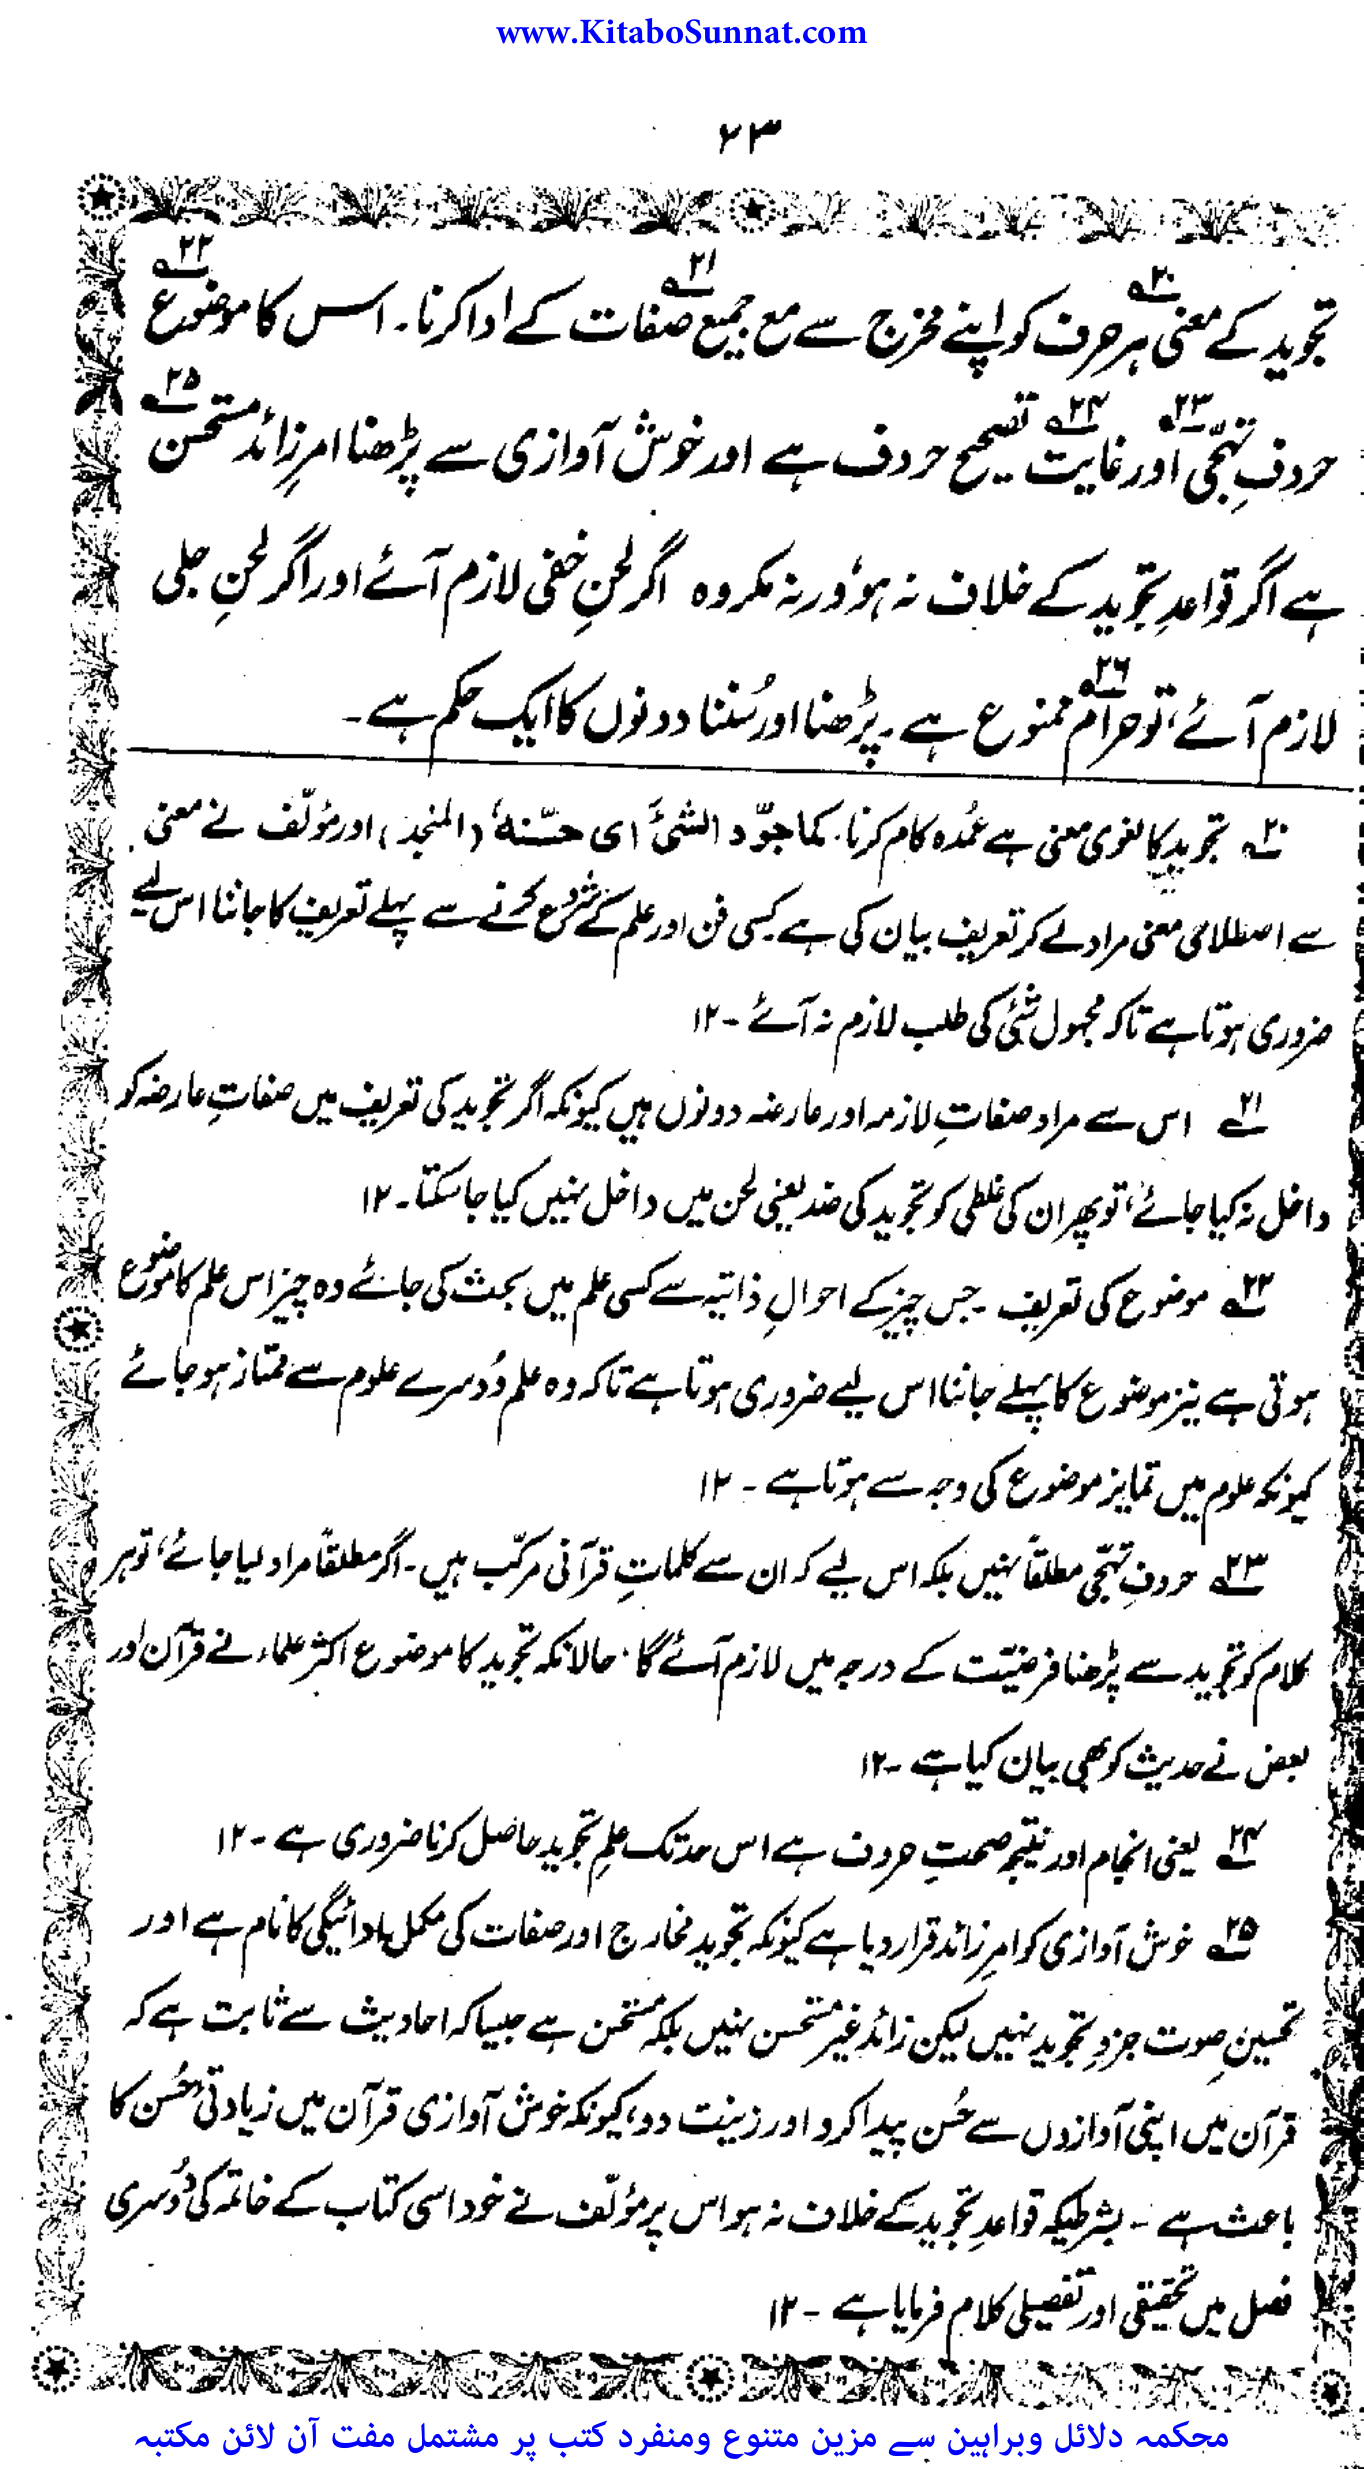 www.KitaboSunnat.com
۲۳
تجوید کے معنی ۲۰ ہر حرف کو اپنے مخرج سے مع جمیع ۲۱ صفات کے ادا کرنا۔ اس کا موضوع ۲۲
حروفِ تہجّی ۲۳ اور غایت ۲۴ تصحیح حروف ہے اور خوش آوازی سے پڑھنا امرِ زائد مستحسن ۲۵
ہے اگر قواعدِ تجوید کے خلاف نہ ہو، ورنہ مکروہ اگر لحنِ خفی لازم آئے اور اگر لحنِ جلی
لازم آئے، تو حرام ۲۶ ممنوع ہے۔ پڑھنا اور سُننا دونوں کا ایک حکم ہے۔
۲۰ تجوید کا لغوی معنی ہے عمُدہ کام کرنا۔ کما جوّد الشیَٔ ای حسّنهٗ (المنجد) اور مؤلّف نے معنی
سے اصطلاحی معنی مراد لے کر تعریف بیان کی ہے کسی فن اور علم کے شروع کرنے سے پہلے تعریف کا جاننا اس لیے
ضروری ہوتا ہے تاکہ مجہول شئی کی طلب لازم نہ آئے ۔ ۱۲
۲۱ اس سے مراد صفاتِ لازمہ اور عارضہ دونوں ہیں کیونکہ اگر تجوید کی تعریف میں صفاتِ عارضہ کو
داخل نہ کیا جائے، تو پھر ان کی غلطی کو تجوید کی ضد یعنی لحن میں داخل نہیں کیا جا سکتا۔ ۱۲
۲۲ موضوع کی تعریف ۔ جس چیز کے احوالِ ذاتیہ سے کسی علم میں بحث کی جائے وہ چیز اس علم کا موضوع
ہوتی ہے نیز موضوع کا پہلے جاننا اس لیے ضروری ہوتا ہے تاکہ وہ علم دُوسرے علوم سے ممتاز ہو جائے
کیونکہ علوم میں تمایز موضوع کی وجہ سے ہوتا ہے ۔ ۱۲
۲۳ حروفِ تہجّی مطلقاً نہیں بلکہ اس لیے کہ ان سے کلماتِ قرآنی مرکّب ہیں۔ اگر مطلقاً مراد لیا جائے، تو ہر
کلام کو تجوید سے پڑھنا فرضیّت کے درجہ میں لازم آئے گا۔ حالانکہ تجوید کا موضوع اکثر علماء نے قرآن اور
بعض نے حدیث کو بھی بیان کیا ہے ۔ ۱۲
۲۴ یعنی انجام اور نتیجہ صحتِ حروف ہے اس حد تک علمِ تجوید حاصل کرنا ضروری ہے ۔ ۱۲
۲۵ خوش آوازی کو امرِ زائد قرار دیا ہے کیونکہ تجوید مخارج اور صفات کی مکمل ادائیگی کا نام ہے اور
تحسینِ صوت جزوِ تجوید نہیں لیکن زائد غیر مستحسن نہیں بلکہ مستحسن ہے جیسا کہ احادیث سے ثابت ہے کہ
قرآن میں اپنی آوازوں سے حُسن پیدا کرو اور زینت دو، کیونکہ خوش آوازی قرآن میں زیادتیٔ حُسن کا
باعث ہے ۔ بشرطیکہ قواعدِ تجوید کے خلاف نہ ہو اس پر مؤلّف نے خود اسی کتاب کے خاتمہ کی دُوسری
فصل میں تحقیقی اور تفصیلی کلام فرمایا ہے ۔ ۱۲
محکمہ دلائل وبراہین سے مزین متنوع ومنفرد کتب پر مشتمل مفت آن لائن مکتبہ